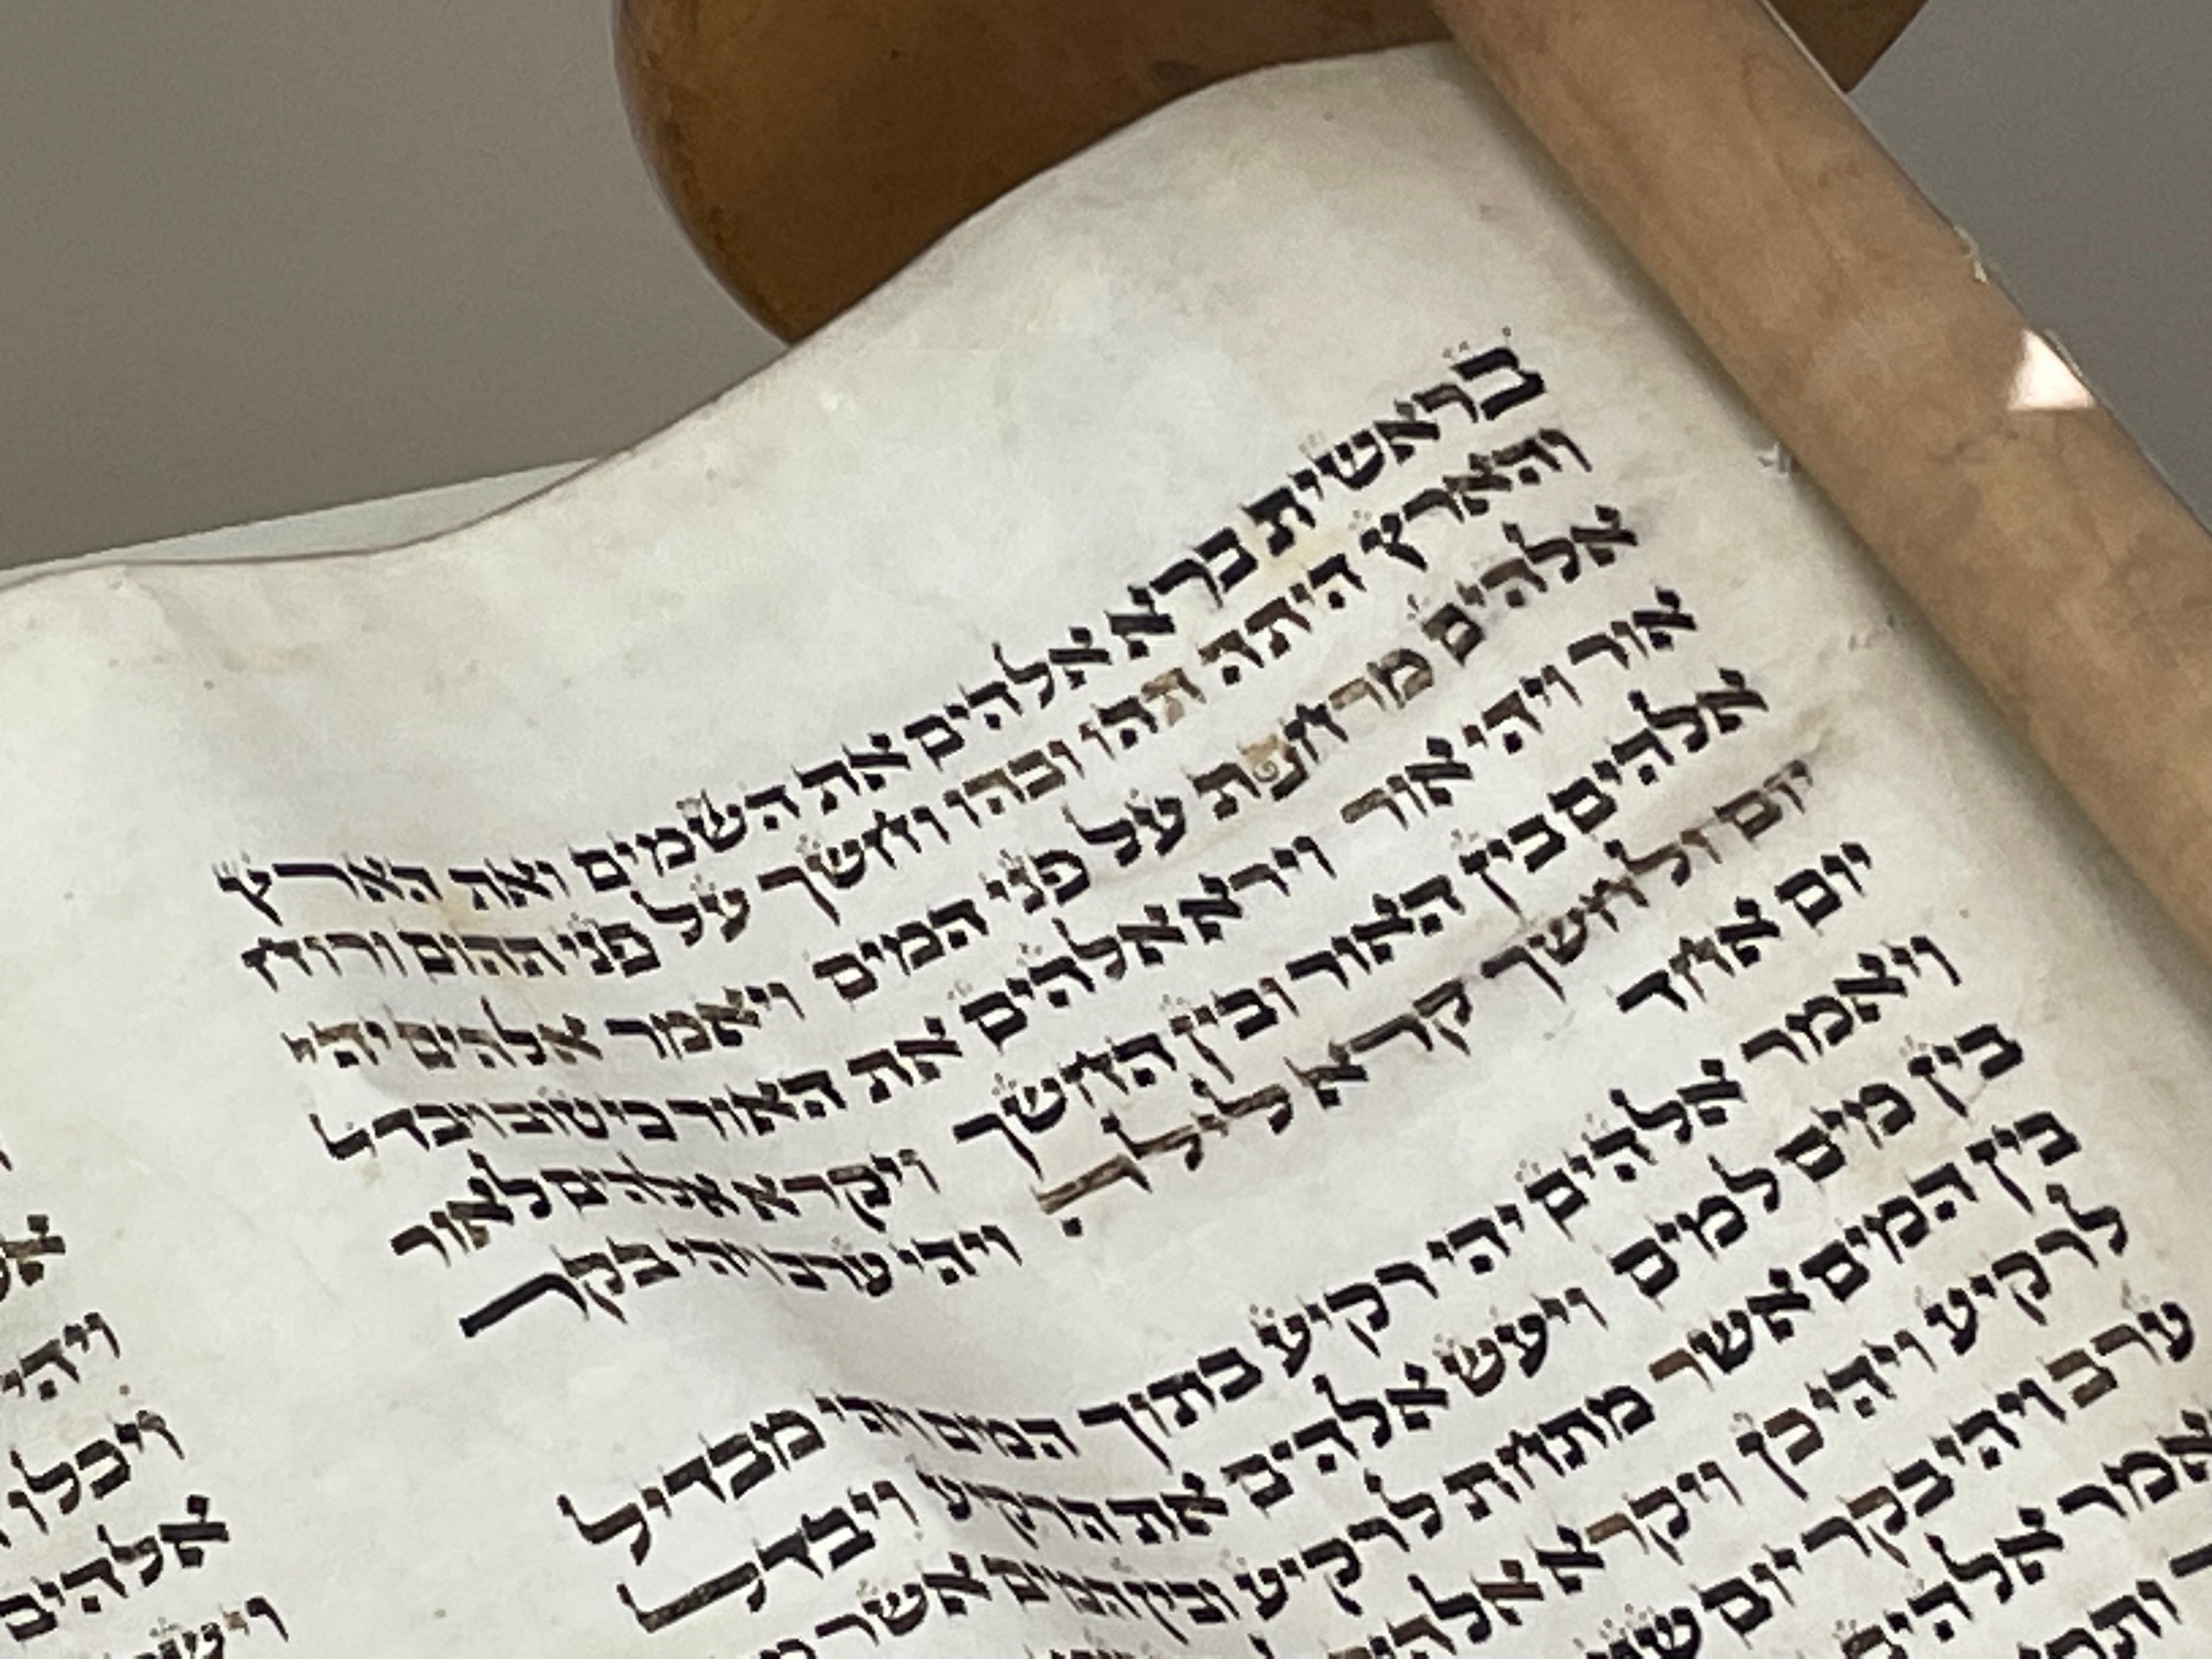 בראשית ברא אלהים את השמים ואת הארץ
והארץ היתה תהו ובהו וחשך על פני תהום ורוח
אלהים מרחפת על פני המים ויאמר אלהים יהי
אור ויהי אור וירא אלהים את האור כי טוב ויבדל
אלהים בין האור ובין החשך ויקרא אלהים לאור
יום ולחשך קרא לילה ויהי ערב ויהי בקר
יום אחד
ויאמר אלהים יהי רקיע בתוך המים ויהי מבדיל
בין מים למים ויעש אלהים את הרקיע ויבדל
בין המים אשר מתחת לרקיע ובין המים אשר
לרקיע ויהי כן ויקרא
ערב ויהי בקר יום
אמר אלהים
ויהי
ויכלו
אלהים